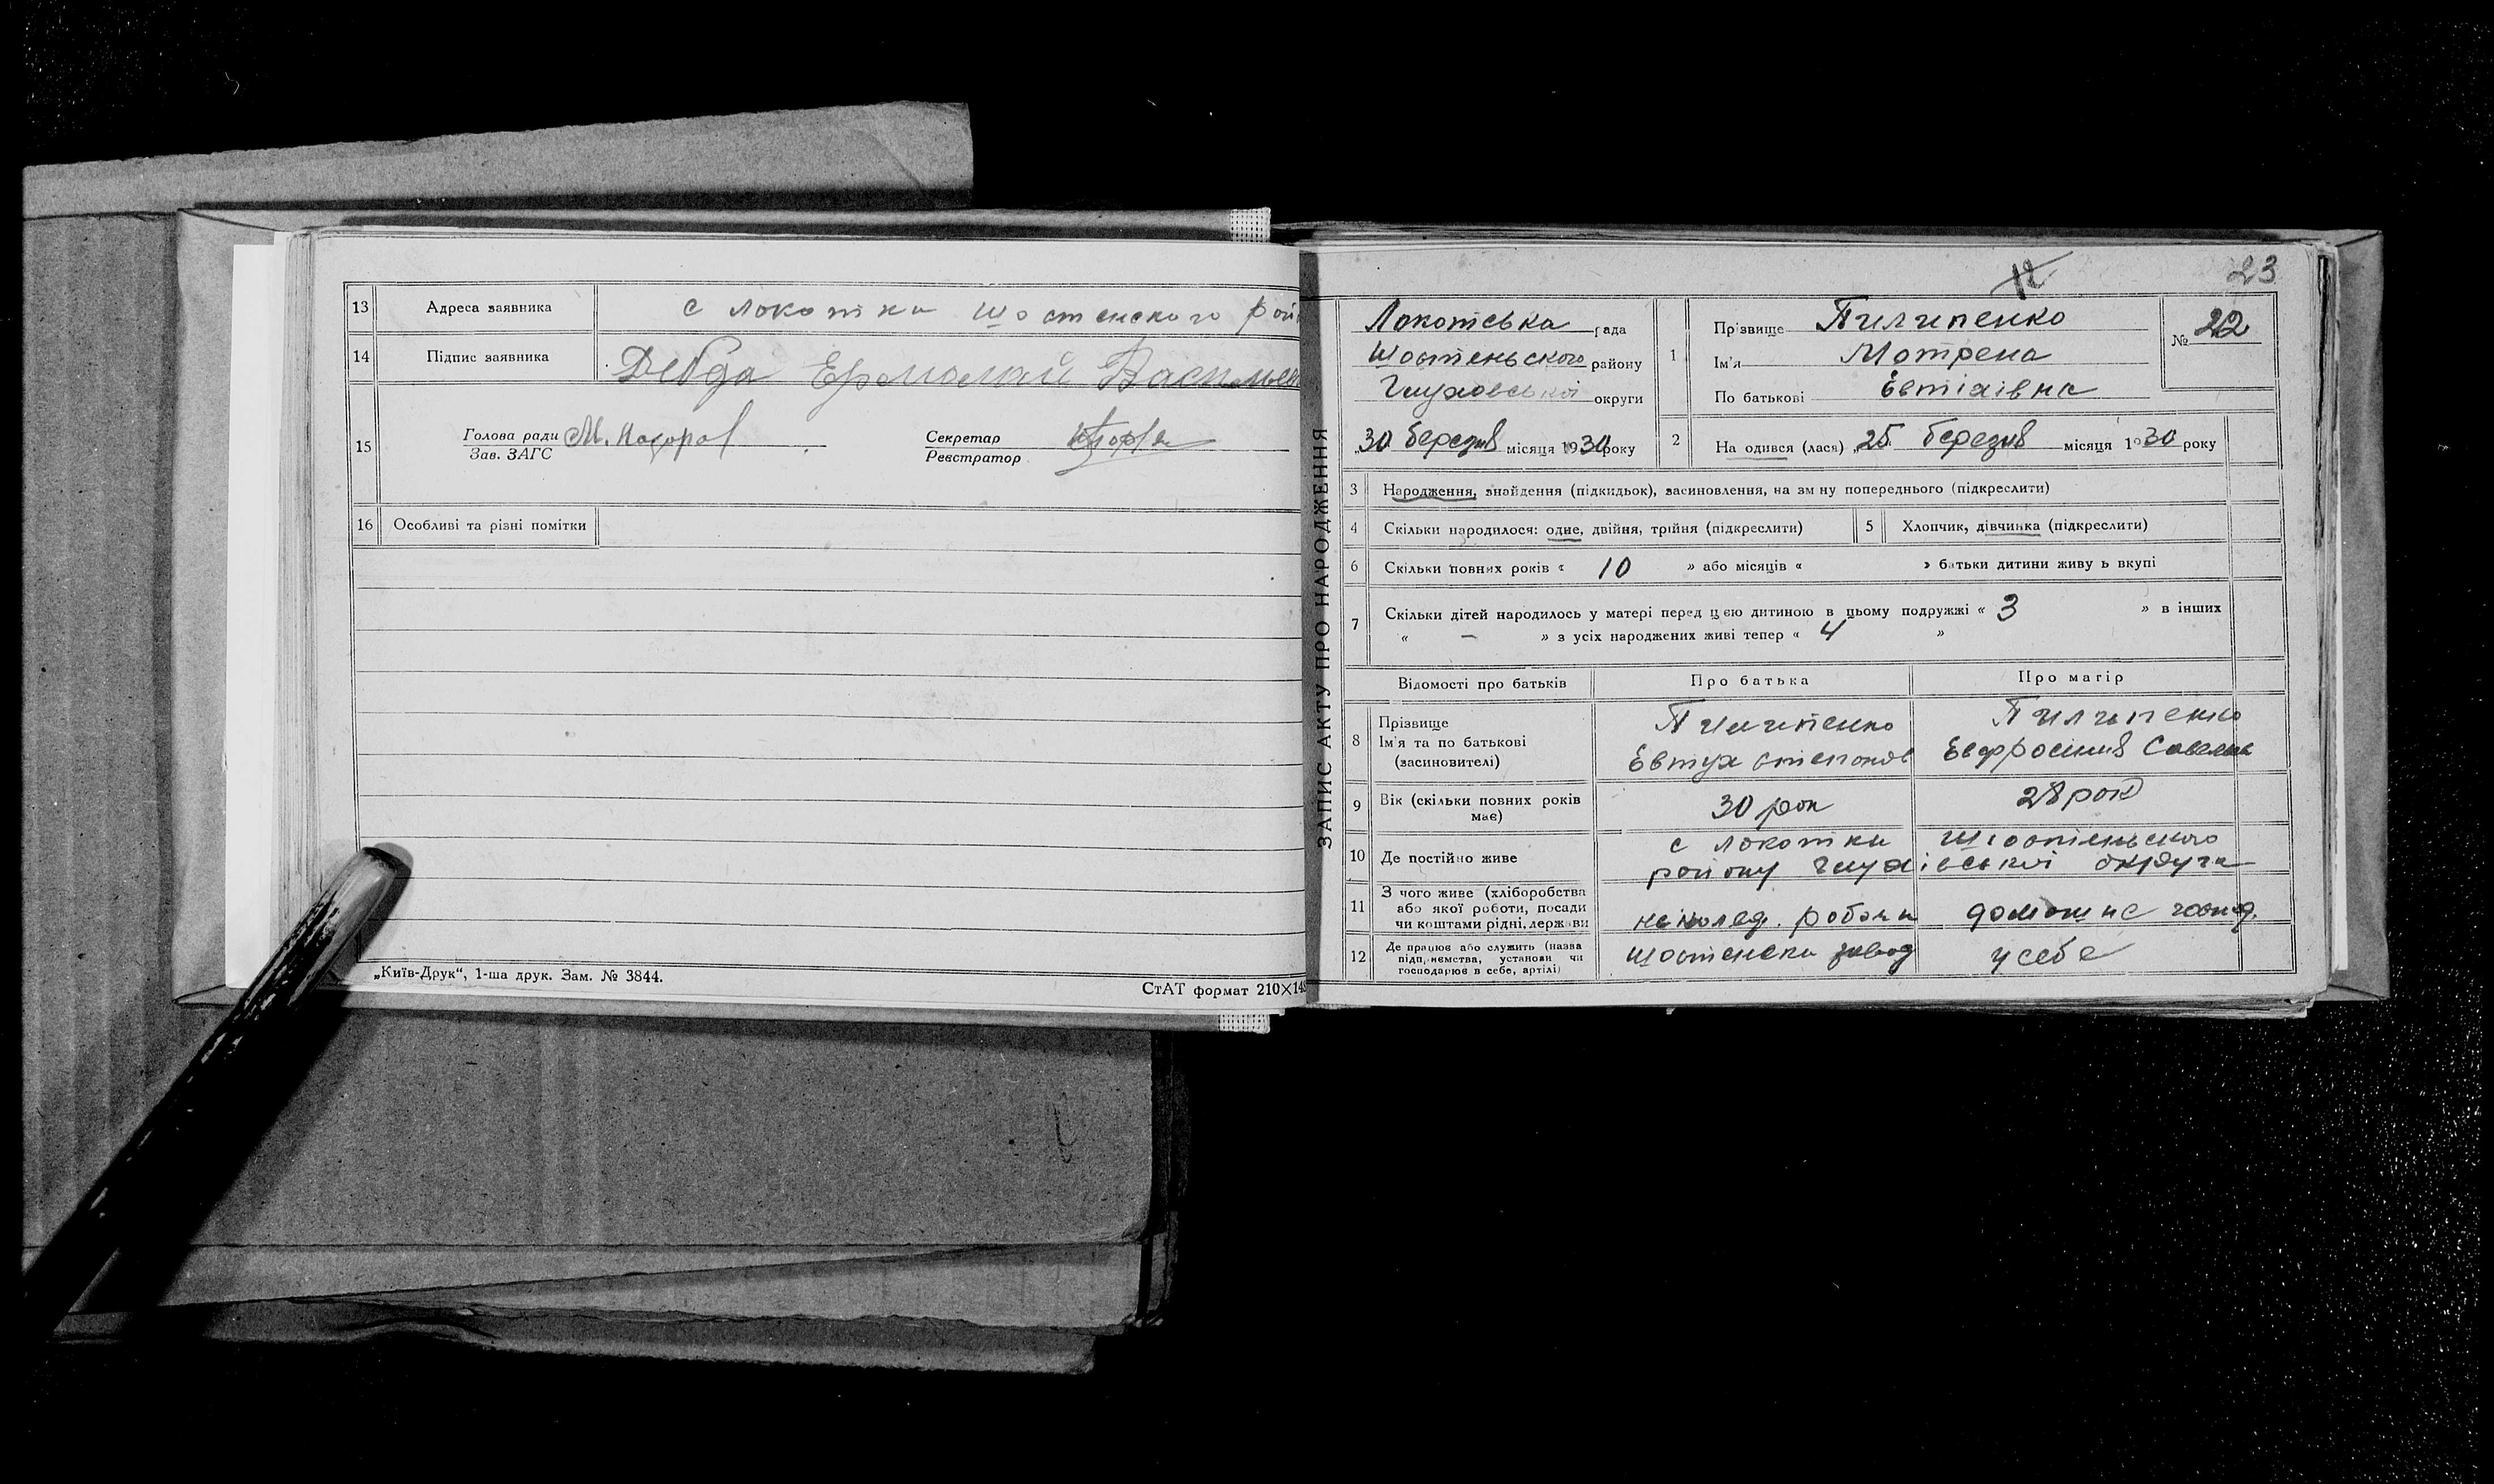 13 Адреса заявника с локотки шостенского рай
14 Підпис заявника Дейда Ермолай
15 Голова ради
Зав. ЗАГС
Секретар
Реєстратор
16 Особливі та різні помітки
„Київ-Друк“, 1-ша друк. Зам. № 3844.
СтАТ формат 210×148
ЗАПИС АКТУ ПРО НАРОДЖЕННЯ
12 23
Локотська рада
Шостеньського району
Глуховської округи
„30 березня місяця 1930 року
1 Прізвище Пилипенко
Ім'я Мотрена
По батькові Евтіаівна
№ 22
2 На одився (лася) „25 березня місяця 1930 року
3 Народження, знайдення (підкидьок), засиновлення, на зм ну попереднього (підкреслити)
4 Скільки народилося: одне, двійня, трійня (підкреслити) 5 Хлопчик, дівчинка (підкреслити)
6 Скільки повних років « 10 » або місяців « » батьки дитини живу ь вкупі
7 Скільки дітей народилось у матері перед цією дитиною в цьому подружжі « 3 » в інших
« – » з усіх народжених живі тепер « 4 »
Відомості про батьків Про батька Про матір
8 Прізвище Пилипенко Пилипенко
Ім'я та по батькові
(засиновителі) Евтух степанов Евфросиния Савельев
9 Вік (скільки повних років
має) 30 рок 28 рок
10 Де постійно живе с локотки шостеньського
району Глухівської округи
11 З чого живе (хліборобства
або якої роботи, посади
чи коштами рідні, держави робочи домашнє господ.
12 Де працює або служить (назва
підп, ємства, установи чи
господарює в себе, артілі) шостенски завод у себе